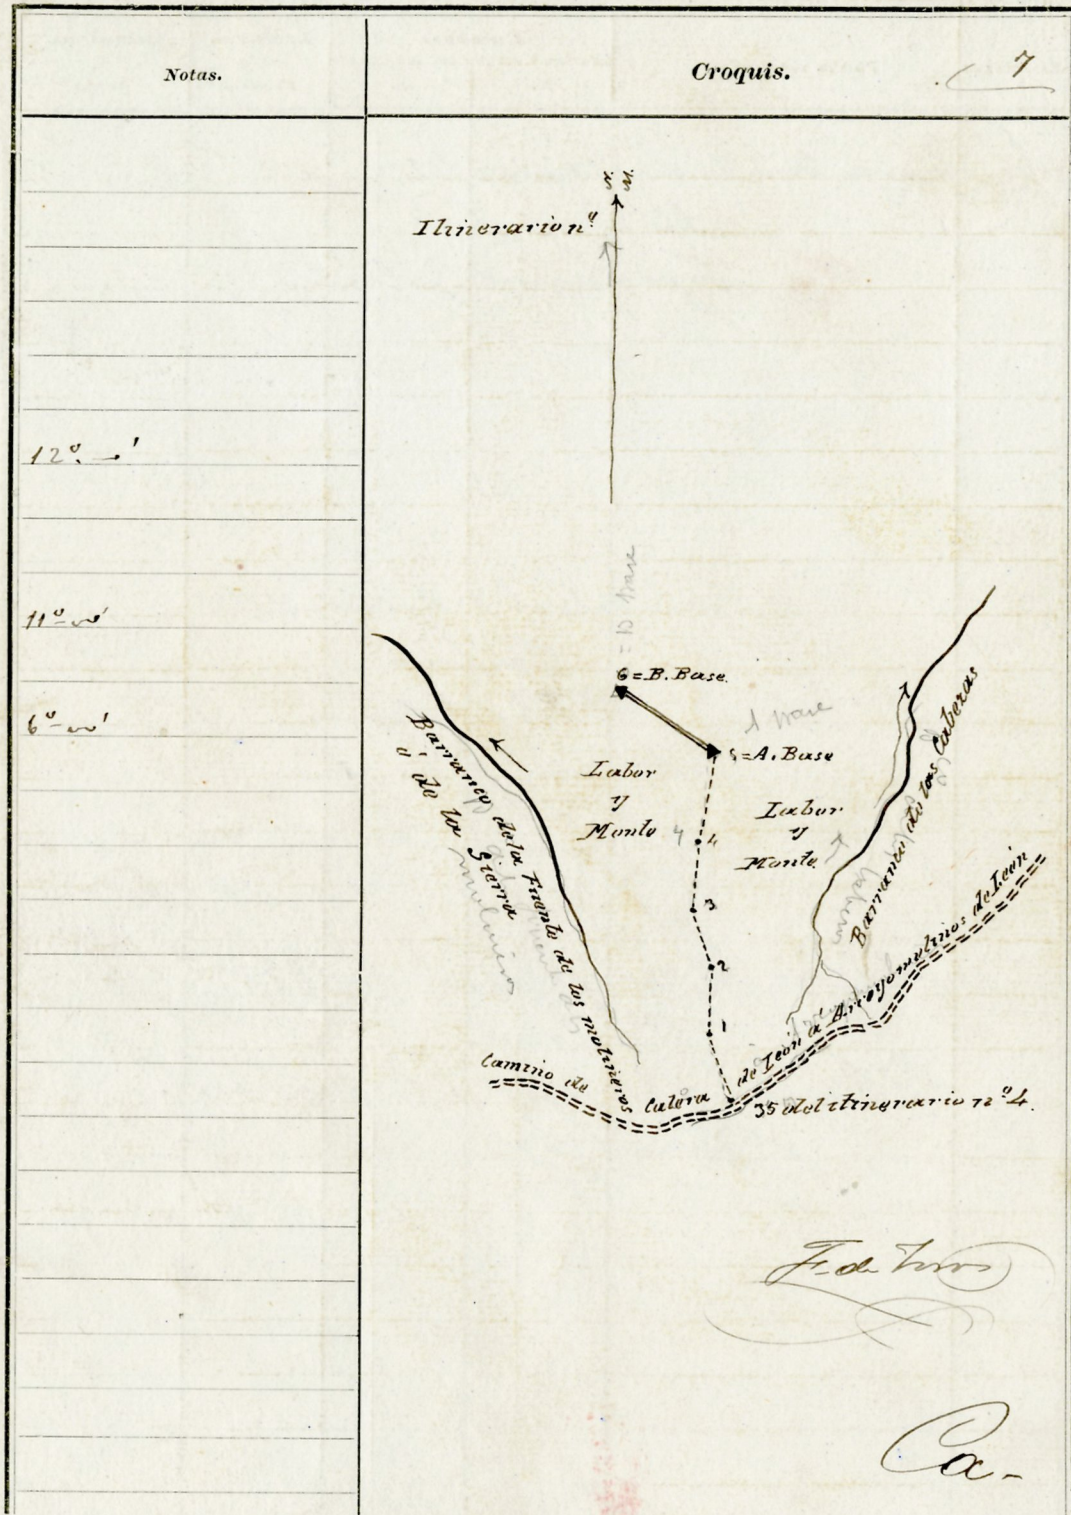 Notas.
Croquis.
7
N. M.
Itinerario nº
12º
11º
6º
6=B. Base.
5=A. Base
Labor
y
Monte
Labor
y
Monte.
4
4
3
2
1
Barranco de la Fuente de los molineros
ó de la Sierra
Barranco de las Caberas
Camino de Calera de León á Arroyomolinos de León
35 del itinerario nº 4.
Ca-